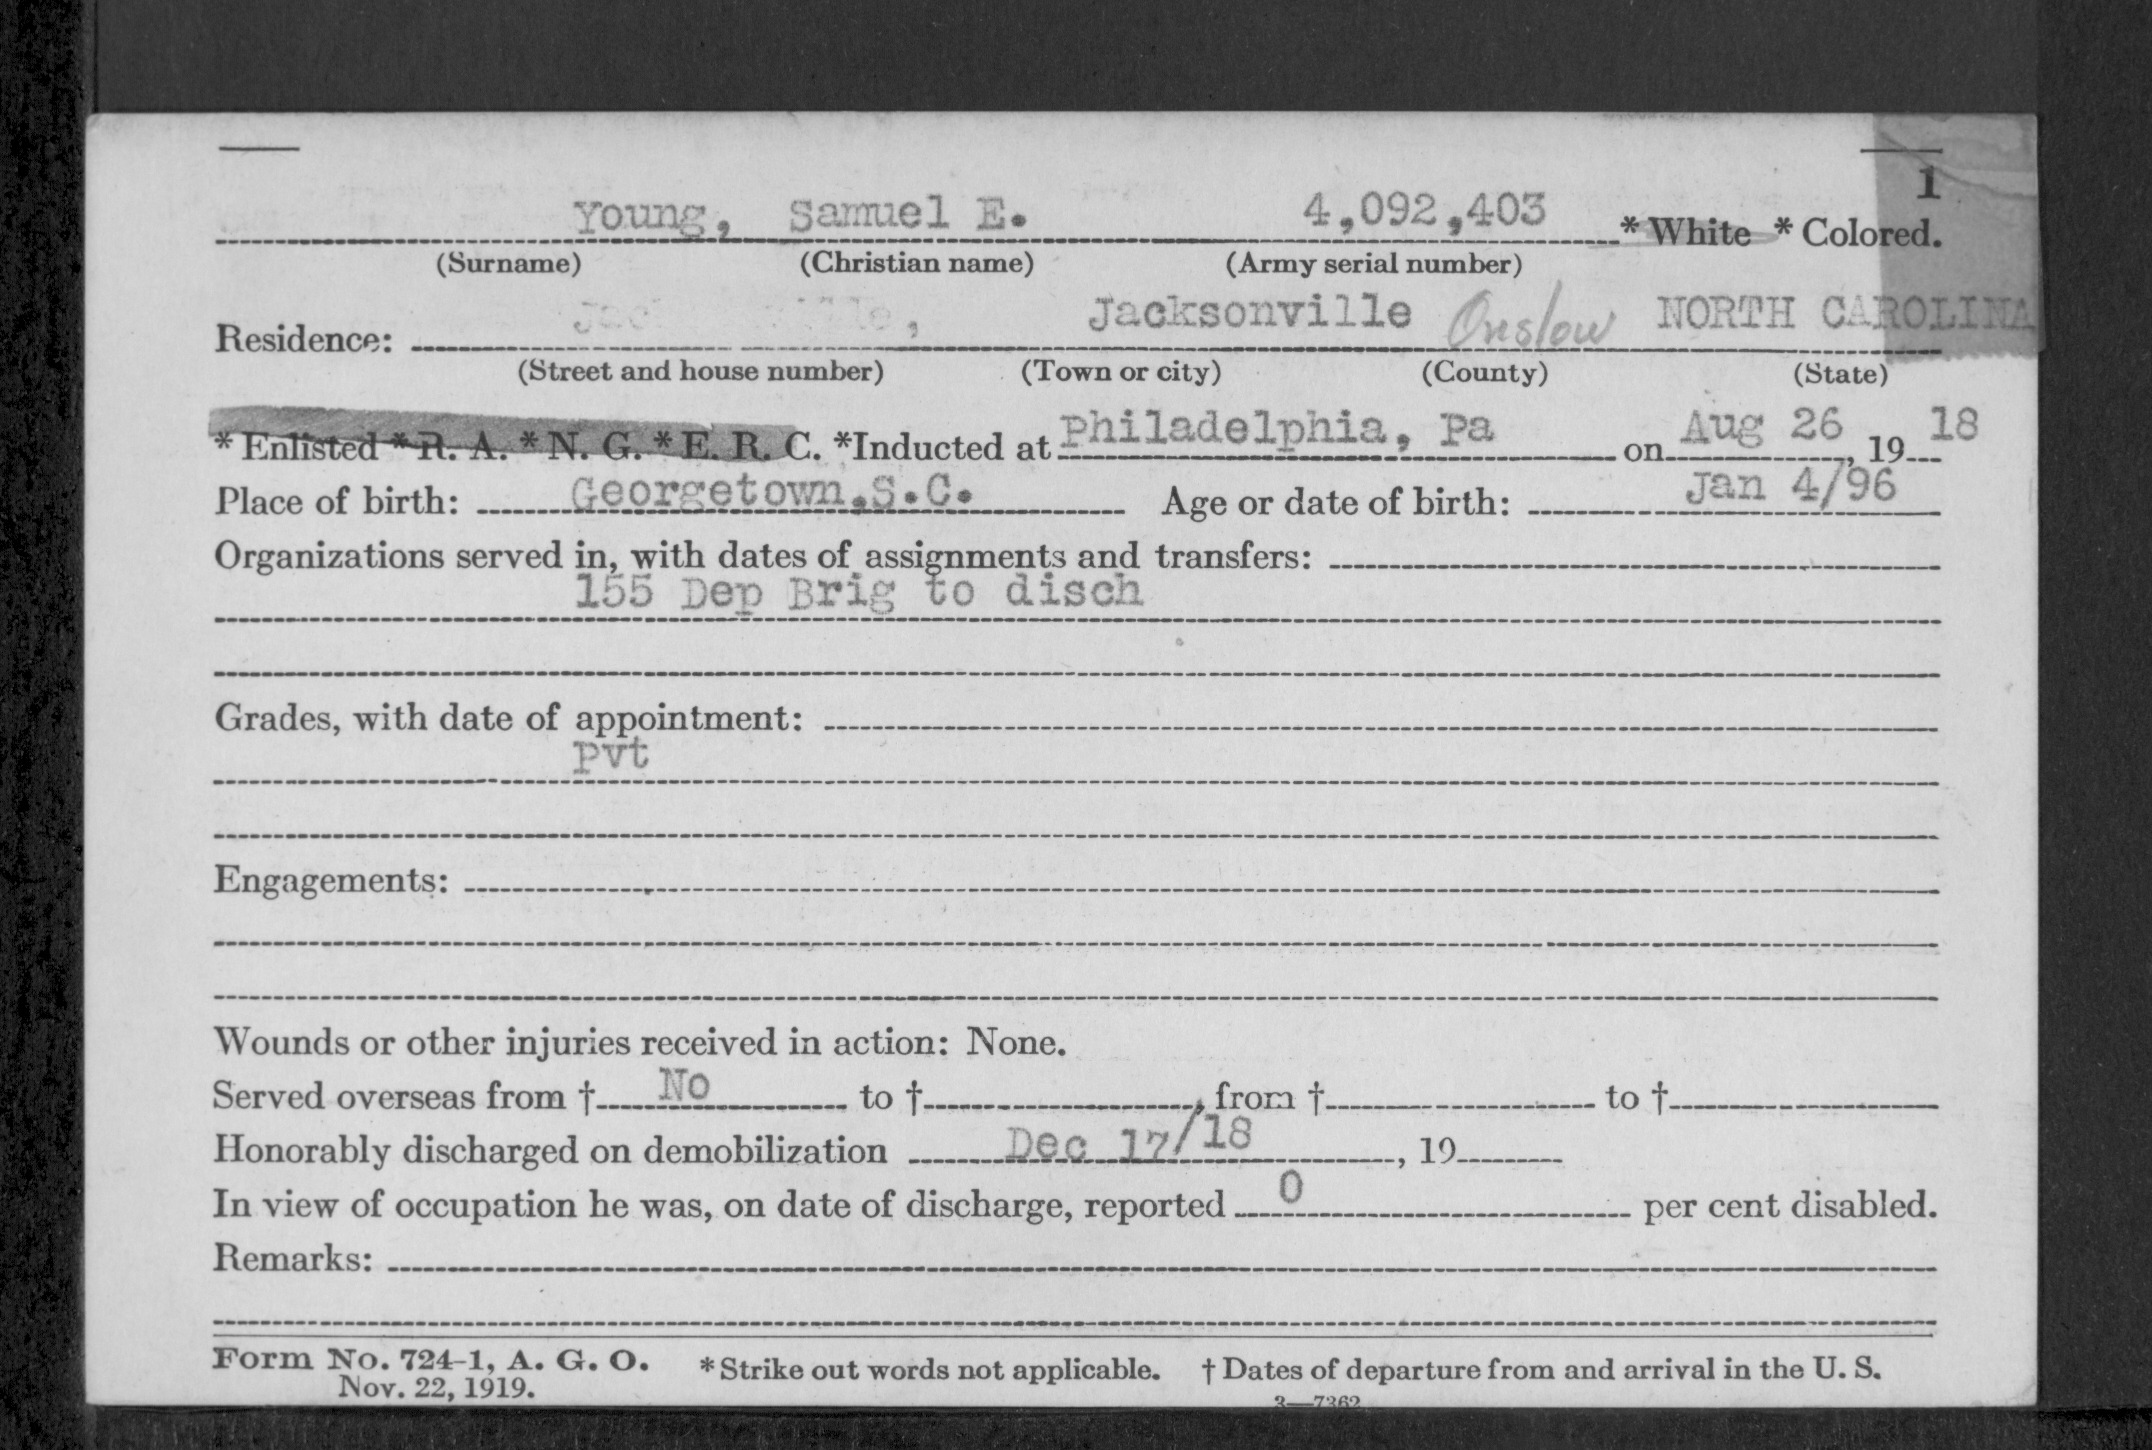 1
Young, Samuel E. 4,092,403 * White * Colored.
(Surname) (Christian name) (Army serial number)
Residence: Jacksonville Onslow NORTH CAROLINA
(Street and house number) (Town or city) (County) (State)
* Enlisted * R. A. * N. G. * E. R. C. *Inducted at Philadelphia, Pa on Aug 26, 1918
Place of birth: Georgetown,S.C. Age or date of birth: Jan 4/96
Organizations served in, with dates of assignments and transfers:
155 Dep Brig to disch
Grades, with date of appointment:
Pvt
Engagements:
Wounds or other injuries received in action: None.
Served overseas from † No to † , from † to †
Honorably discharged on demobilization Dec 17/18 , 19
In view of occupation he was, on date of discharge, reported 0 per cent disabled.
Remarks:
Form No. 724-1, A. G. O. * Strike out words not applicable. † Dates of departure from and arrival in the U. S.
Nov. 22, 1919.
3—7362